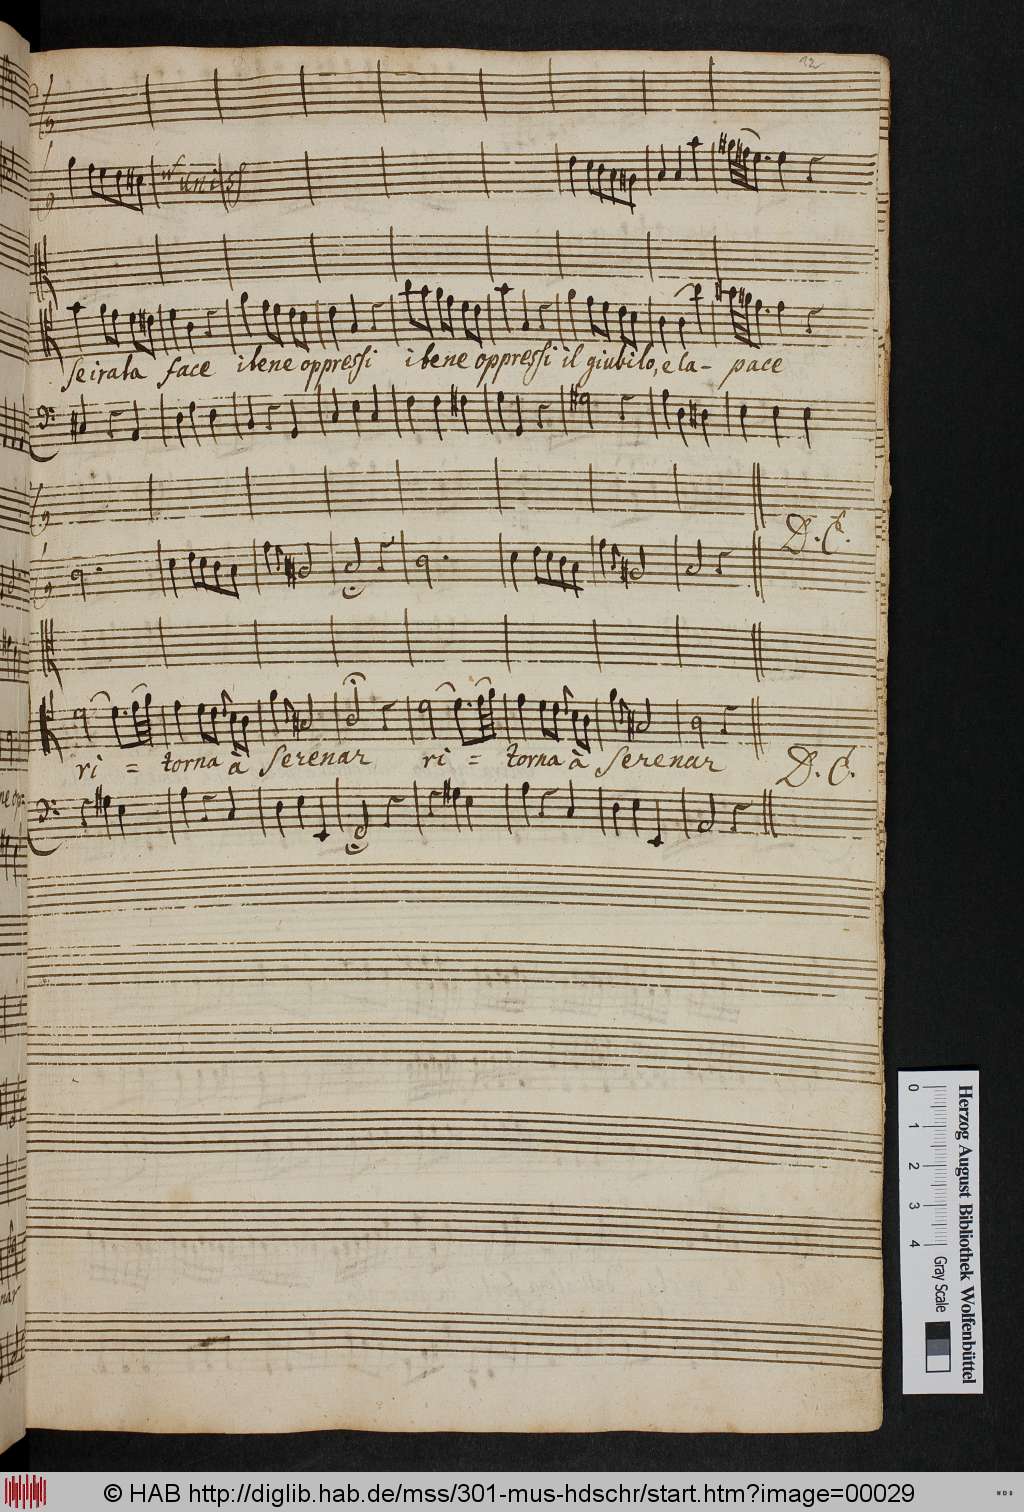 12
uniss
se irata face i bene oppressi i bene oppressi il giubilo, e la - pace
D. C.
ri = torna à serenar ri = torna à serenar
D. C.
0 1 2 3 4
Gray Scale
Herzog August Bibliothek Wolfenbüttel
© HAB http://diglib.hab.de/mss/301-mus-hdschr/start.htm?image=00029